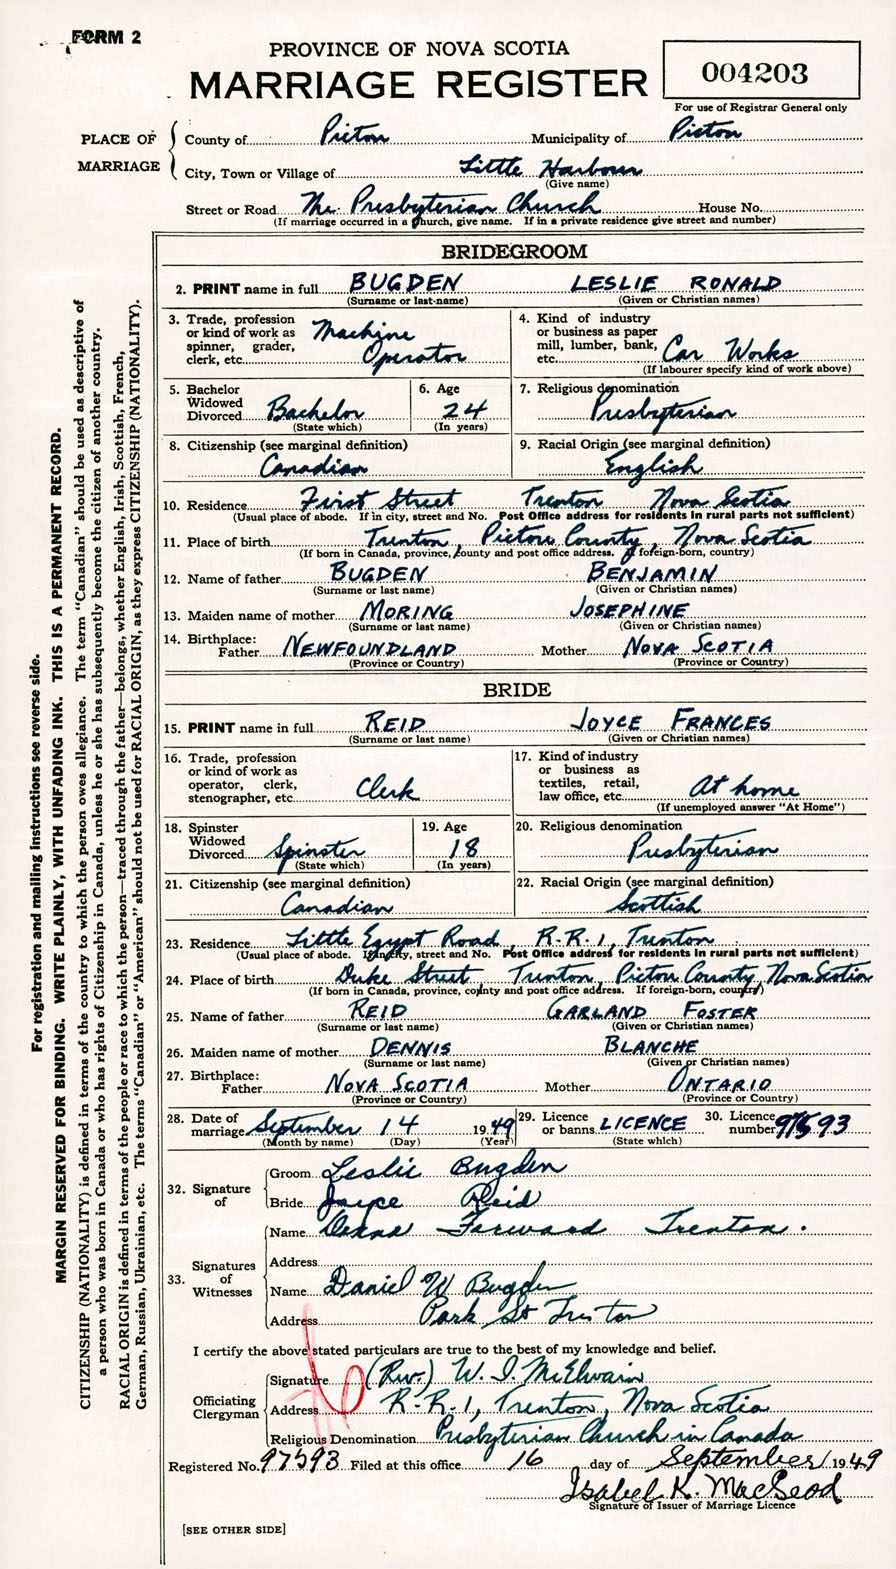 FORM 2
PROVINCE OF NOVA SCOTIA
MARRIAGE REGISTER
004203
For use of Registrar General only
PLACE OF MARRIAGE
County of Pictou Municipality of Pictou
City, Town or Village of Little Harbour
(Give name)
Street or Road The Presbyterian Church House No.
(If marriage occurred in a church, give name. If in a private residence give street and number)
BRIDEGROOM
2. PRINT name in full BUGDEN LESLIE RONALD
(Surname or last name) (Given or Christian names)
3. Trade, profession or kind of work as spinner, grader, clerk, etc. Machine Operator
4. Kind of industry or business as paper mill, lumber, bank, etc. Car Works
(If labourer specify kind of work above)
5. Bachelor Widowed Divorced Bachelor
(State which)
6. Age 24
(In years)
7. Religious denomination Presbyterian
8. Citizenship (see marginal definition) Canadian
9. Racial Origin (see marginal definition) English
10. Residence First Street Trenton Nova Scotia
(Usual place of abode. If in city, street and No. Post Office address for residents in rural parts not sufficient)
11. Place of birth Trenton, Pictou County, Nova Scotia
(If born in Canada, province, county and post office address. If foreign-born, country)
12. Name of father BUGDEN BENJAMIN
(Surname or last name) (Given or Christian names)
13. Maiden name of mother MORING JOSEPHINE
(Surname or last name) (Given or Christian names)
14. Birthplace:
Father NEWFOUNDLAND Mother NOVA SCOTIA
(Province or Country) (Province or Country)
BRIDE
15. PRINT name in full REID JOYCE FRANCES
(Surname or last name) (Given or Christian names)
16. Trade, profession or kind of work as operator, clerk, stenographer, etc. Clerk
17. Kind of industry or business as textiles, retail, law office, etc. At home
(If unemployed answer "At Home")
18. Spinster Widowed Divorced Spinster
(State which)
19. Age 18
(In years)
20. Religious denomination Presbyterian
21. Citizenship (see marginal definition) Canadian
22. Racial Origin (see marginal definition) Scottish
23. Residence Little Egypt Road, R.R.1, Trenton
(Usual place of abode. If in city, street and No. Post Office address for residents in rural parts not sufficient)
24. Place of birth Duke Street Trenton, Pictou County, Nova Scotia
(If born in Canada, province, county and post office address. If foreign-born, country)
25. Name of father REID GARLAND FOSTER
(Surname or last name) (Given or Christian names)
26. Maiden name of mother DENNIS BLANCHE
(Surname or last name) (Given or Christian names)
27. Birthplace:
Father NOVA SCOTIA Mother ONTARIO
(Province or Country) (Province or Country)
28. Date of marriage September 14 1949
(Month by name) (Day) (Year)
29. Licence or banns LICENCE
(State which)
30. Licence number 97593
32. Signature of
Groom Leslie Bugden
Bride Joyce Reid
33. Signatures of Witnesses
Name Forward Trenton.
Address
Name Daniel W Bugden
Address Park St Trenton
I certify the above stated particulars are true to the best of my knowledge and belief.
Officiating Clergyman
Signature (Rev.) W. I. McElwain
Address R-R-1, Trenton, Nova Scotia
Religious Denomination Presbyterian Church in Canada
Registered No. 97593 Filed at this office 16 day of September 1949
Isabel K. MacLeod
Signature of Issuer of Marriage Licence
[SEE OTHER SIDE]
For registration and mailing instructions see reverse side.
MARGIN RESERVED FOR BINDING. WRITE PLAINLY, WITH UNFADING INK. THIS IS A PERMANENT RECORD.
CITIZENSHIP (NATIONALITY) is defined in terms of the country to which the person owes allegiance. The term "Canadian" should be used as descriptive of
a person who was born in Canada or who has rights of Citizenship in Canada, unless he or she has subsequently become the citizen of another country.
RACIAL ORIGIN is defined in terms of the people or race to which the person—traced through the father—belongs, whether English, Irish, Scottish, French,
German, Russian, Ukrainian, etc. The terms "Canadian" or "American" should not be used for RACIAL ORIGIN, as they express CITIZENSHIP (NATIONALITY).